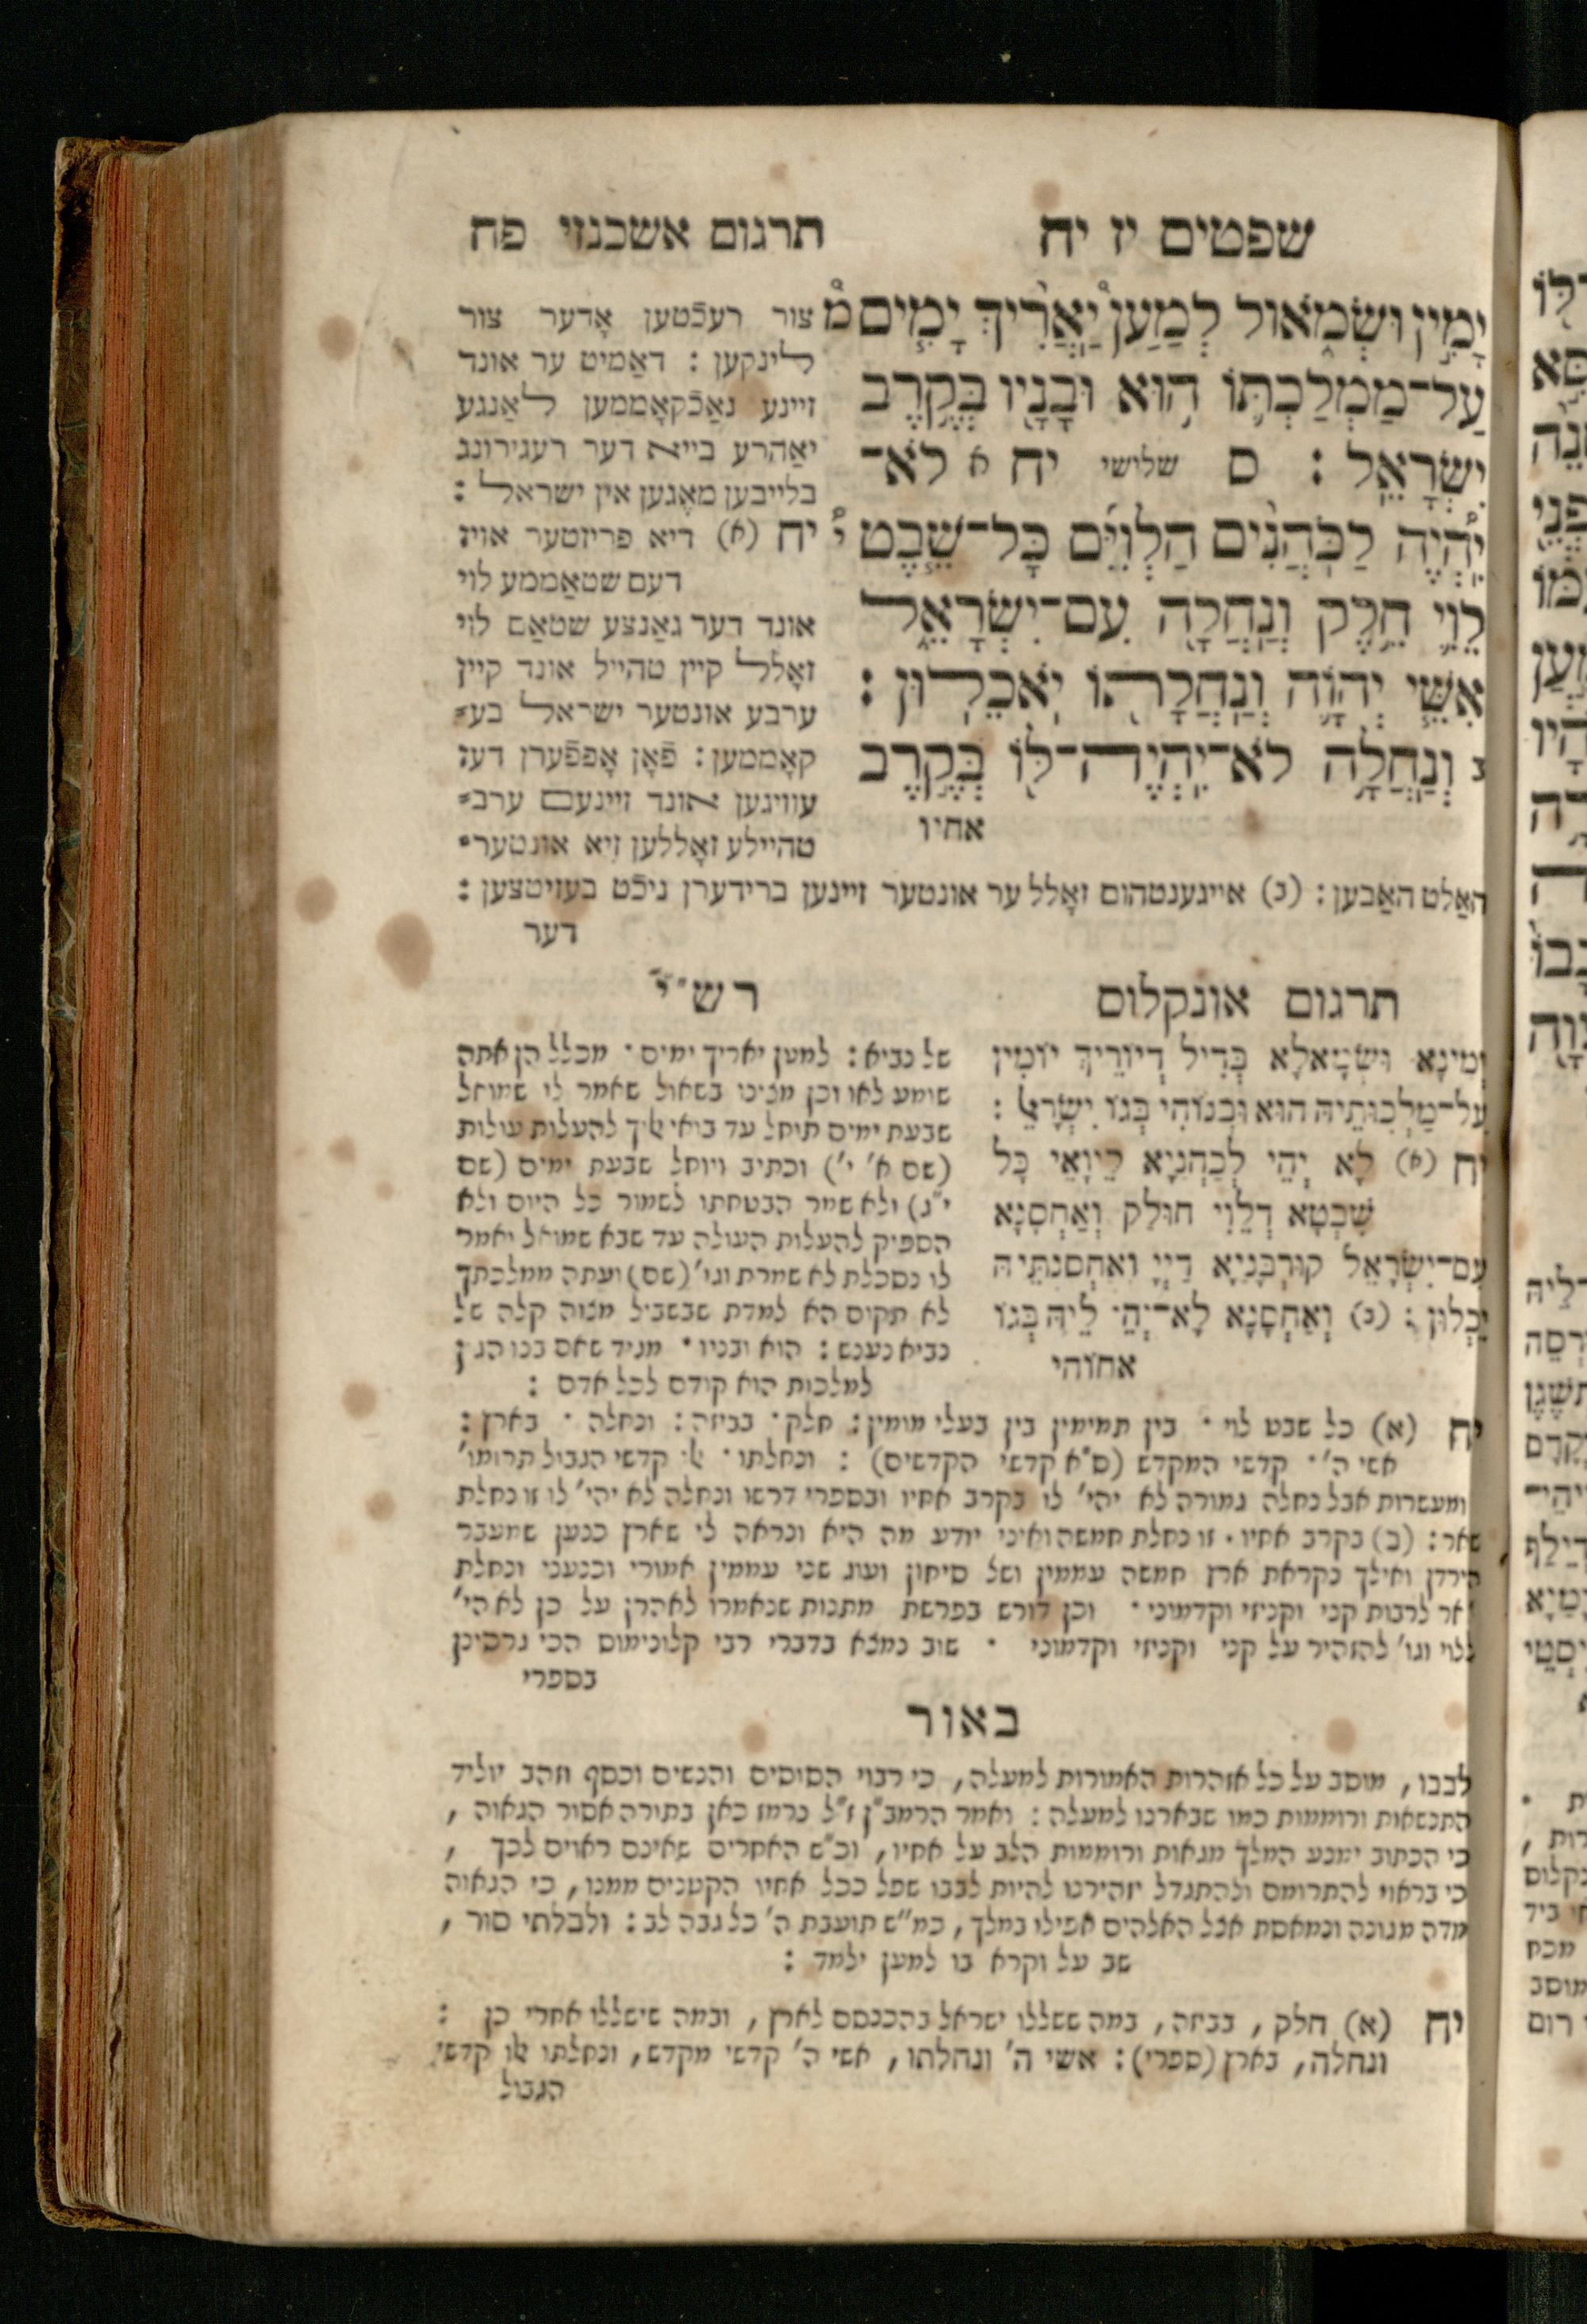 שפטים יז יח
תרגום אשכנזי פח
יָמִ֣ין וּשְׂמֹ֑אול לְמַעַן֩ יַאֲרִ֨יךְ יָמִ֧ים
עַל־מַמְלַכְתּ֛וֹ ה֥וּא וּבָנָ֖יו בְּקֶ֥רֶב
יִשְׂרָאֵֽל : ס שלישי יח א לֹא־
יִֽ֠הְיֶה לַכֹּהֲנִ֨ים הַלְוִיִּ֜ם כָּל־שֵׁ֧בֶט
לֵוִ֛י חֵ֥לֶק וְנַחֲלָ֖ה עִם־יִשְׂרָאֵ֑ל
אִשֵּׁ֧י יְהוָ֛ה וְנַחֲלָת֖וֹ יֹאכֵלֽוּן :
ב וְנַחֲלָ֥ה לֹא־יִֽהְיֶה־לּ֖וֹ בְּקֶ֣רֶב
אחיו
צור רעכֿטען אָדער צור
לינקען : דאַמיט ער אונד
זיינע נאַכֿקאָממען לאַנגע
יאַהרע בייא דער רעגירונג
בלייבען מאָגען אין ישראל :
יח (א) דיא פריזטער אויז
דעם שטאַממע לוי
אונד דער גאַנצע שטאַם לוי
זאָלל קיין טהייל אונד קיין
ערבע אונטער ישראל בע=
קאָממען : פֿאָן אָפּפֿערן דעז
עוויגען אונד זיינעם ערב=
טהיילע זאָללען זיא אונטער=
האַלט האַבען : (ב) אייגענטהום זאָלל ער אונטער זיינען ברידערן ניכֿט בעזיטצען :
דער
תרגום אונקלוס
וְשְׂמָאלָא בְּדִיל דְיוֹרֵיךְ יוֹמִין
עַל־מַלְכוּתֵיהּ הוּא וּבְנוֹהִי בְּגוֹ יִשְׂרָאֵל :
יח (א) לָא יְהֵי לְכַהֲנַיָא לֵיוָאֵי כָּל
שִׁבְטָא דְלֵוִי חוּלַק וְאַחְסָנָא
עִם־יִשְׂרָאֵל קוּרְבָּנַיָא דַייָ וְאַחְסַנְתֵּיהּ
יֵכְלוּן : (ב) וְאַחְסָנָא לָא־יְהֵי לֵיהּ בְּגוֹ
אחוהי
רש״י
של נביא : למען יאריך ימים . מכלל הן אתה
שומע לאו וכן מצינו בשאול שאמר לו שמואל
שבעת ימים תוחל עד בואי אליך להעלות עולות
(שם א׳ י׳) וכתיב ויוחל שבעת ימים (שם
י״ג) ולא שמר הבטחתו לשמור כל היום ולא
הספיק להעלות העולה עד שבא שמואל ואמר
לו נסכלת לא שמרת וגו׳ (שם) ועתה ממלכתך
לא תקום הא למדת שבשביל מצוה קלה של
נביא נענש : הוא ובניו . מגיד שאם בנו הגון
למלכות הוא קודם לכל אדם :
יח (א) כל שבט לוי . בין תמימין בין בעלי מומין : חלק . בביזה : ונחלה . בארץ :
אשי ה׳ . קדשי המקדש (ס״א קדשי הקדשים) : ונחלתו . אלו קדשי הגבול תרומו׳
ומעשרות אבל נחלה גמורה לא יהי׳ לו בקרב אחיו ובספרי דרשו ונחלה לא יהי׳ לו זו נחלת
שאר : (ב) בקרב אחיו . זו נחלת חמשה ואיני יודע מה היא ונראה לי שארץ כנען שמעבר
הירדן ואילך נקראת ארץ חמשה עממין ושל סיחון ועוג שני עממין אמורי וכנעני ונחלת
שאר לרבות קני וקניזי וקדמוני . וכן דורש בפרשת מתנות שנאמרו לאהרן על כן לא הי׳
ללוי וגו׳ להזהיר על קני וקניזי וקדמוני . שוב נמצא בדברי רבי קלונימוס הכי גרסינן
בספרי
באור
לבבו , מוסב על כל אזהרות האמורות למעלה , כי רבוי הסוסים והנשים וכסף וזהב יוליד
התנשאות ורוממות כמו שבארנו למעלה : ואמר הרמב״ן ז״ל נרמז כאן בתורה אסור הגאוה ,
כי הכתוב ימנע המלך מגאות ורוממות הלב על אחיו , וכ״ש האחרים שאינם ראוים לכך ,
כי בראוי להתרומם ולהתגדל יזהירנו להיות לבבו שפל ככל אחיו הקטנים ממנו , כי הגאוה
מדה מגונה ונמאסת אצל האלהים אפילו במלך , כמ״ש תועבת ה׳ כל גבה לב : ולבלתי סור ,
שב על וקרא בו למען ילמד :
יח (א) חלק , בביזה , במה ששללו ישראל בהכנסם לארץ , ובמה שישללו אחרי כן :
ונחלה , בארץ (ספרי) : אשי ה׳ ונחלתו , אשי ה׳ קדשי מקדש , ונחלתו אלו קדשי
הגבול